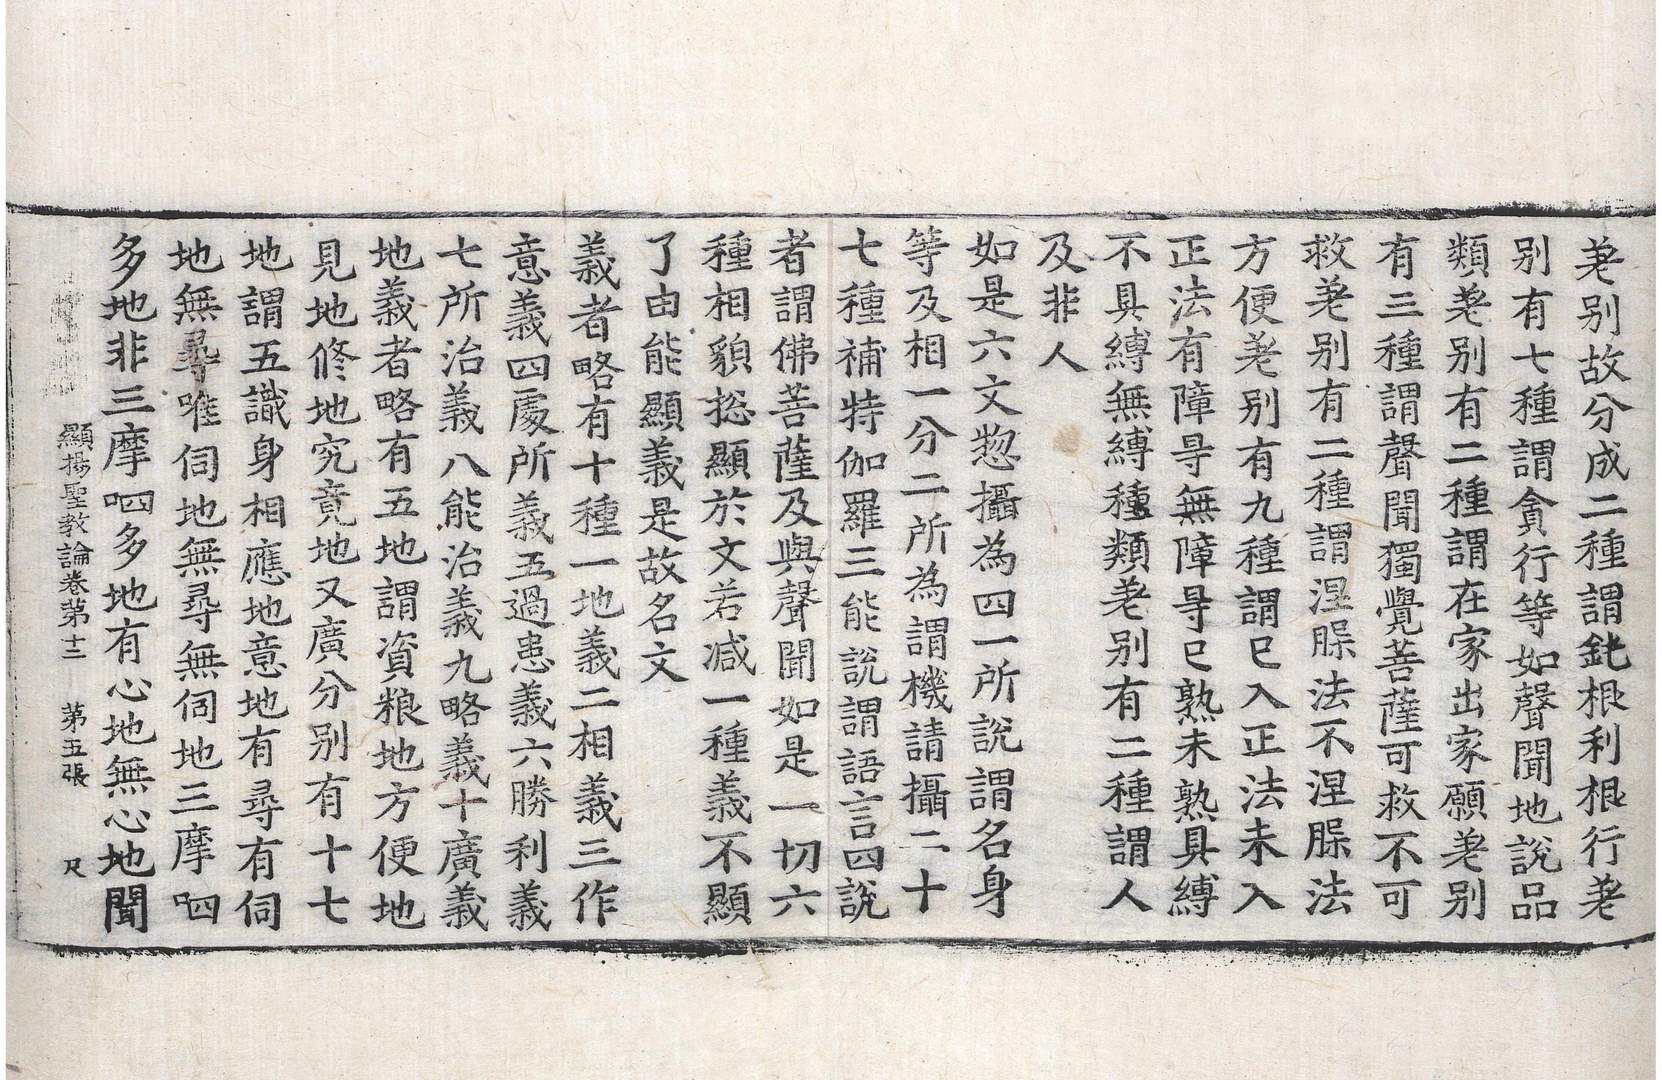 差别故分成二種謂鈍根利根行差
别有七種謂貪行等如聲聞地說品
類差别有二種謂在家出家願差别
有三種謂聲聞獨覺菩薩可救不可
救差别有二種謂涅槃法不涅槃法
方便差别有九種謂已入正法未入
正法有障㝵無障㝵已熟未熟具縛
不具縛無縛種類差别有二種謂人
及非人
如是六文惣攝為四一所說謂名身
等及相一分二所為謂機請攝二十
七種補特伽羅三能說謂語言四說
者謂佛菩薩及與聲聞如是一切六
種相貌揔顯於文若减一種義不顯
了由能顯義是故名文
義者略有十種一地義二相義三作
意義四處所義五過患義六勝利義
七所治義八能治義九略義十廣義
地義者略有五地謂資粮地方便地
見地修地究竟地又廣分别有十七
地謂五識身相應地意地有尋有伺
地無尋唯伺地無尋無伺地三摩呬
多地非三摩呬多地有心地無心地聞
顯揚聖教論卷第十二 第五張 尺